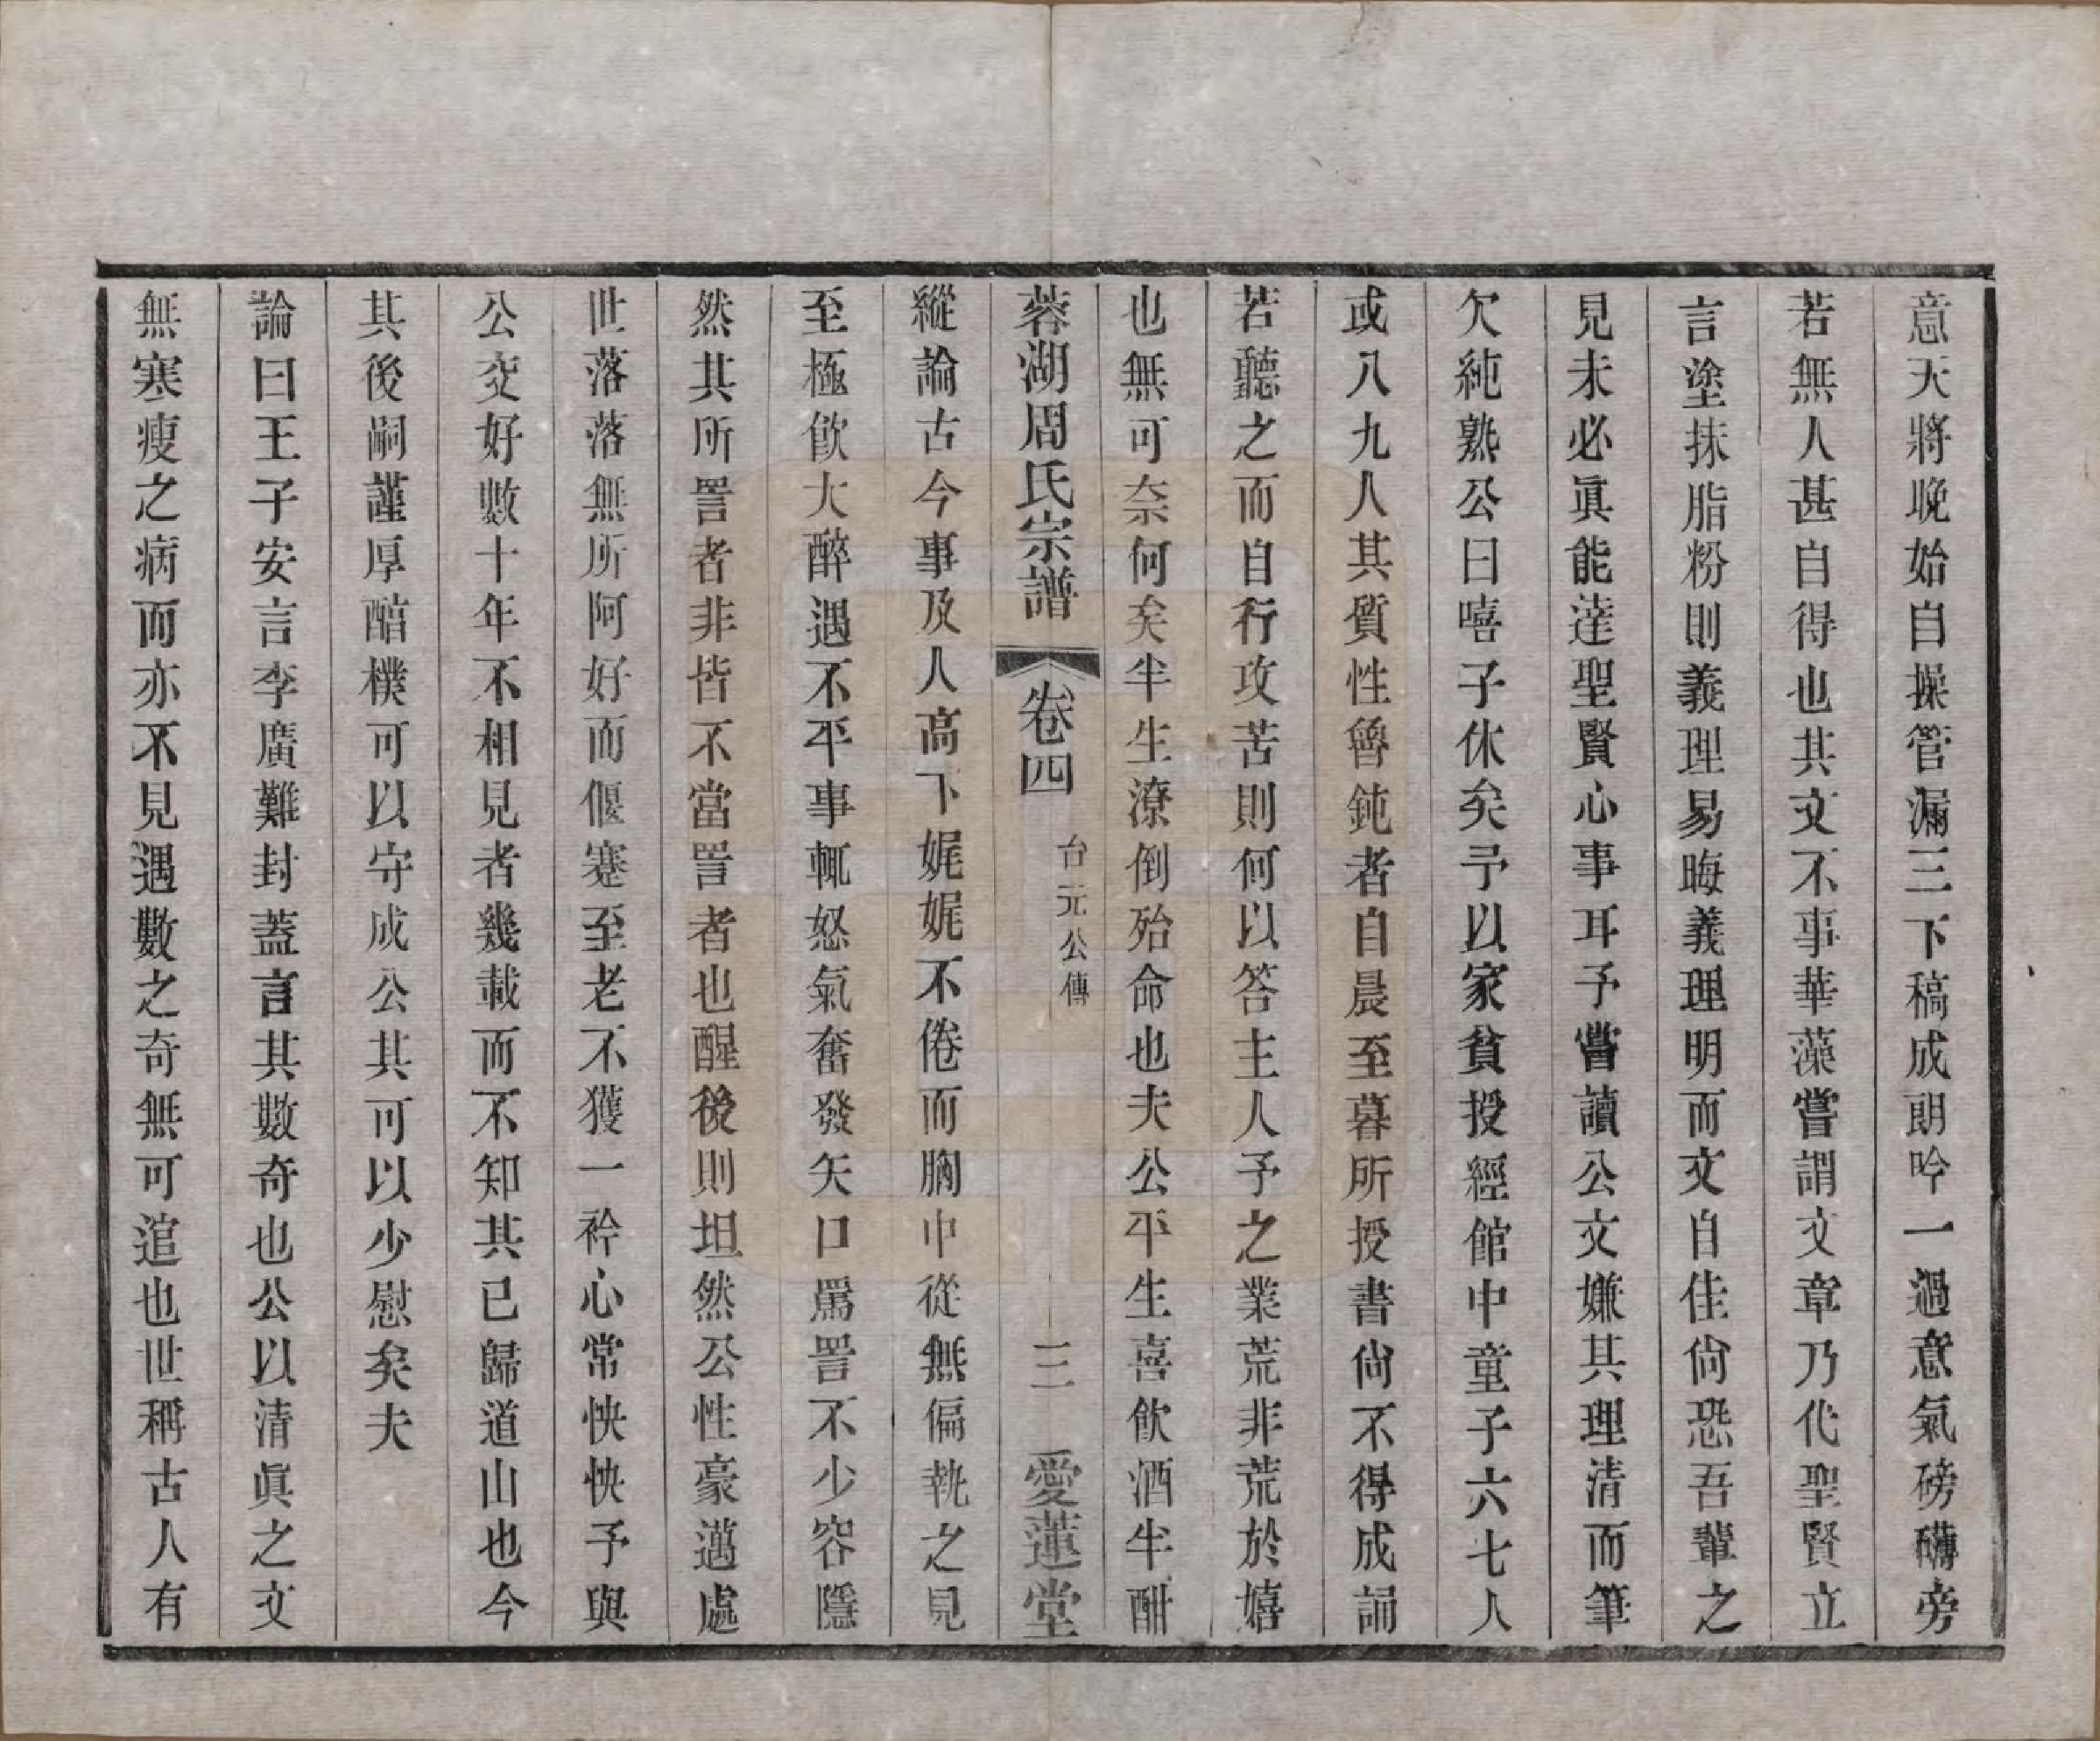 意天將晚始自操管漏三下稿成朗吟一過意氣磅礴旁
若無人甚自得也其文不事華藻嘗謂文章乃代聖賢立
言塗抹脂粉則義理易晦義理明而文自佳尙恐吾輩之
見未必眞能達聖賢心事耳予嘗讀公文嫌其理清而筆
欠純熟公曰嘻子休矣予以家貧授經館中童子六七人
或八九人其質性魯鈍者自晨至暮所授書尙不得成誦
若聽之而自行攻苦則何以答主人予之業荒非荒於嬉
也無可奈何矣半生潦倒殆命也夫公平生喜飲酒半酣
蓉湖周氏宗譜 卷四 台元公傳 三 愛蓮堂
縱論古今事及人高下娓娓不倦而胸中從無偏執之見
至極飲大醉遇不平事輒怒氣奮發矢口罵詈不少容隱
然其所詈者非皆不當詈者也醒後則坦然公性豪邁處
世落落無所阿好而偃蹇至老不獲一衿心常怏怏予與
公交好數十年不相見者幾載而不知其已歸道山也今
其後嗣謹厚醕樸可以守成公其可以少慰矣夫
論曰王子安言李廣難封蓋言其數奇也公以清眞之文
無寒瘦之病而亦不見遇數之奇無可逭也世稱古人有